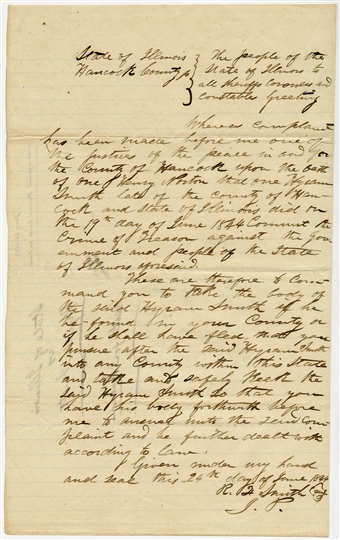 State of Illinois } The people of the
Hancock County ss } State of Illinois to
all Sheriffs Coroners and
Constables Greeting
Whereas complaint
has been made before me one of
the justices of the peace in and for
the County of Hancock upon the oath
of one Henry Norton that one Hyram
Smith late of the county of Han-
cock and State of Illinois, did on
the 19th day of June 1844 Commit the
Crime of treason against the Gov-
ernment and people of the State
of Illinois aforesaid.
These are therefore to Com-
mand you to take the body of
the said Hyram Smith if he
be found in your County or
if he shall have fled that you
pursue after the said Hyram Smith
into any County within this State
and take and safely keep the
said Hyram Smith so that you
have his body forthwith before
me to answer unto the said Com-
plaint and be further dealt with
according to law.
Given under my hand
and seal this 24th day of June 1844
R. F. Smith
J. P.